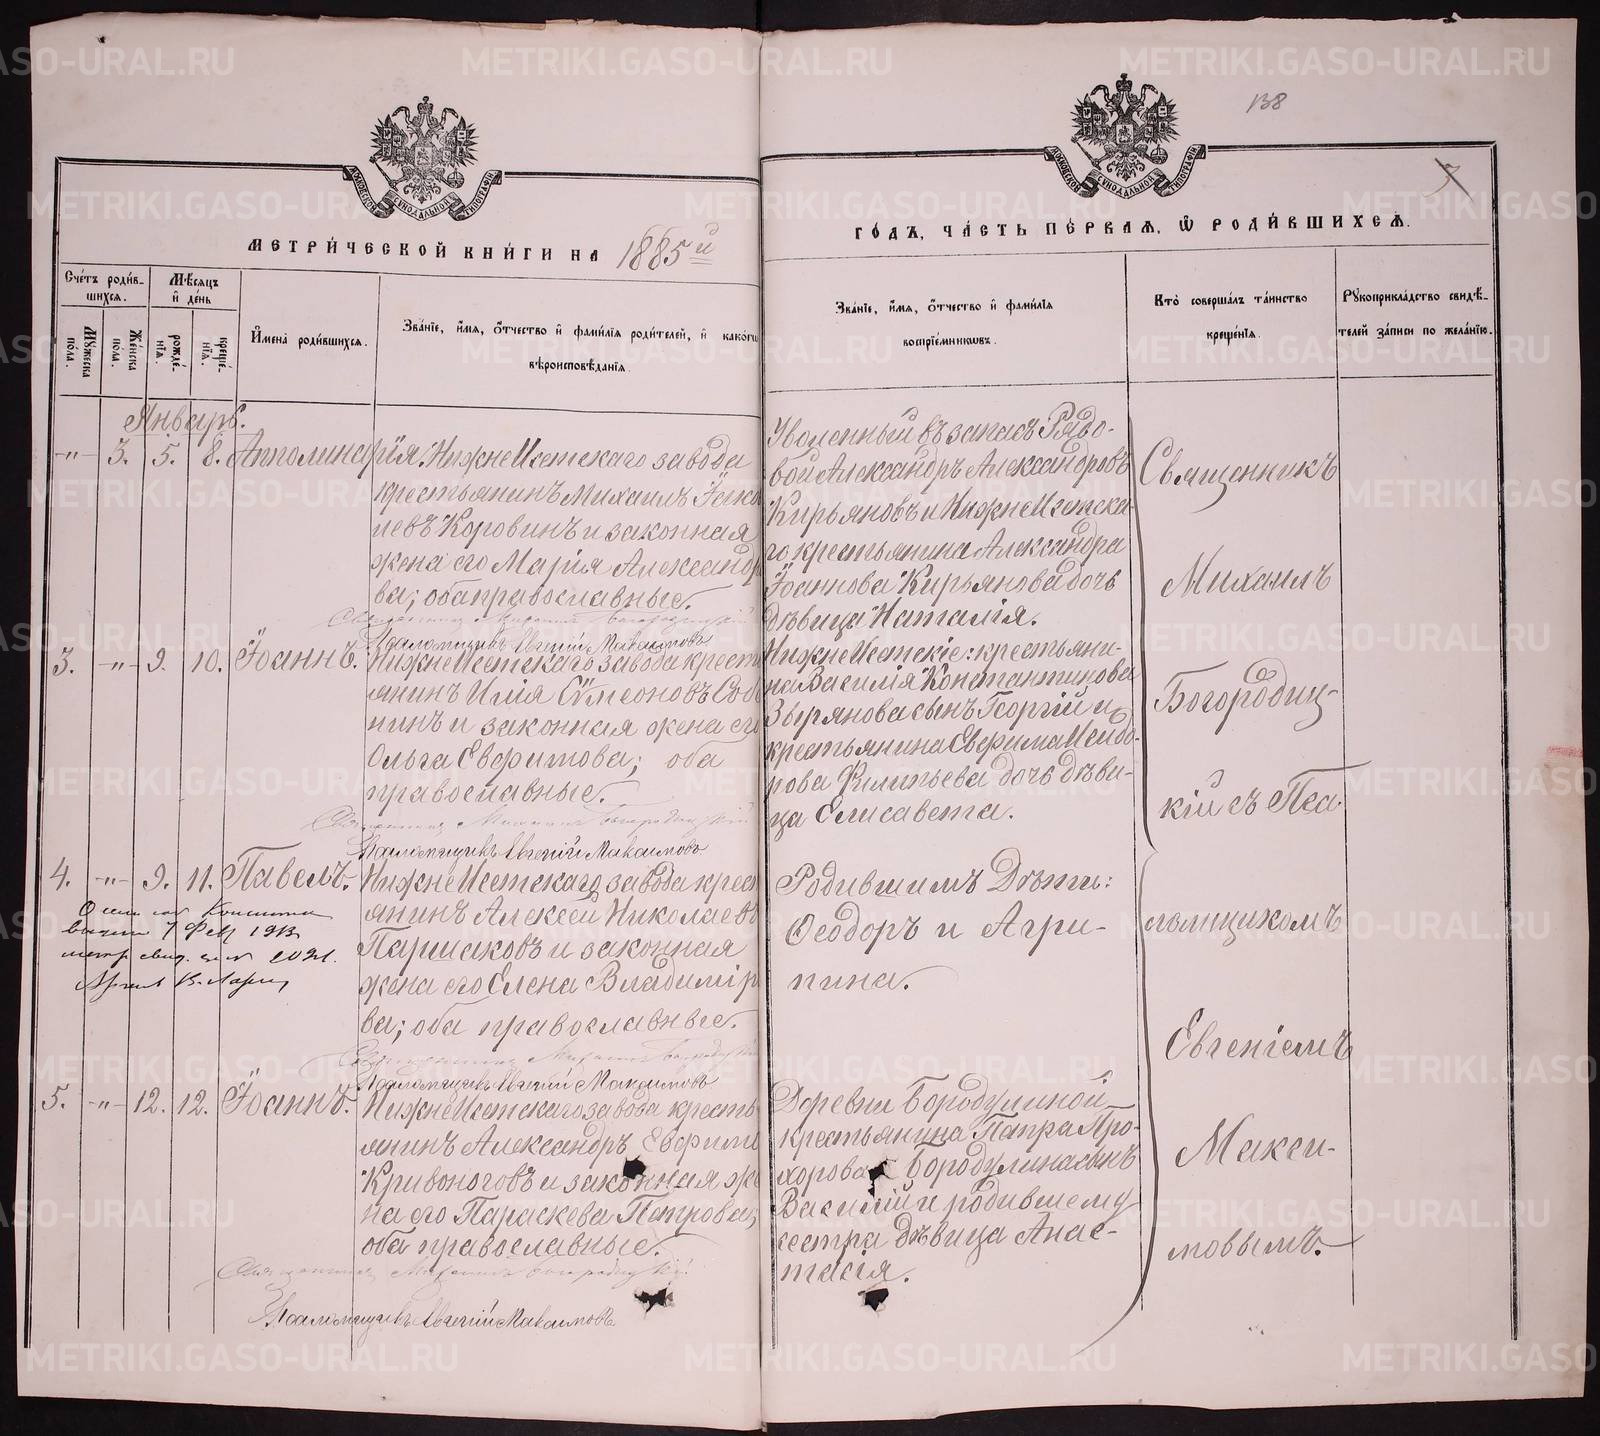 138
7
МОСКОВСКОЙ СѴНОДАЛЬНОЙ ТИПОГРАФІИ
МОСКОВСКОЙ СѴНОДАЛЬНОЙ ТИПОГРАФІИ
МЕТРИ́ЧЕСКОЙ КНИ́ГИ НА 1885й
ГО́ДЪ, ЧА́СТЬ ПЕ́РВАѦ, Ѿ РОДИ́ВШИХСѦ.
Сче́тъ роди́в-
шихся.
Мѣ́сяцъ
и҆ де́нь
Мꙋ́жеска по́ла.
Же́нска по́ла.
рожде́-
нїѧ.
креще́-
нїѧ.
И҆мена̀ роди́вшихся.
Зва́нїе, и҆́мя, ѻ҆́тчество и҆ фами́лїя роди́телей, и҆ како́гѡ
вѣроисповѣ́данїя.
Зва́нїе, и҆́мя, ѻ҆́тчество и҆ фами́лїя
воспрїе́мникѡвъ.
Кто̀ соверша́лъ та́инство
креще́нїя.
Рꙋкоприкла́дство свидѣ́-
телей за́писи по жела́нїю.
Январь.
-„- 3. 5. 8. Апполинарія.
НижнеИсетскаго завода
крестьянинъ Михаилъ
невъ Коровинъ и законная
жена его Марія Александр
ва; оба православные.
Священникъ Михаилъ Богородицкій
Псаломщикъ Евгеній Максимовъ
Уволенный въ запасъ Рядо-
вой Александръ Александровъ
Кирьяновъ и НижнеИсетска-
го крестьянина Александра
Іоаннова Кирьянова дочь
дѣвица Наталія.
3. -„- 9. 10. Іоаннъ.
НижнеИсетскаго завода кресть
янинъ Илія Сѵмеоновъ Соб
нинъ и законная жена его
Ольга Евфимова; оба
православные.
Священникъ Михаилъ Богородицкій
Псаломщикъ Евгеній Максимовъ
НижнеИсетскіе: крестьяни-
на Василія Константинова
Зырянова сынъ Георгій и
крестьянина Евфима
рова Филипьева дочь дѣви-
ца Елисавета.
4. -„- 9. 11. Павелъ.
НижнеИсетскаго завода крест
янинъ Алексей Николаевъ
Паршаковъ и законная
жена его Елена Владимір
ва; оба православные.
Священникъ Михаилъ Богородицкій
Псаломщикъ Евгеній Максимовъ
7 Фев 1913
Родившимъ Дѣти:
Ѳеодоръ и Агри-
пина.
5. -„- 12. 12. Іоаннъ.
НижнеИсетскаго завода кресть
янинъ Александръ Евфими
Кривоноговъ и законная же
на его Параскева Петрова;
оба православные.
Священникъ Михаилъ Богородицкій
Псаломщикъ Евгеній Максимовъ
Деревни Бородулиной
крестьянина Петра Про-
хорова Бородулина сынъ
Василій и родившему
сестра дѣвица Анас-
тасія.
Священникъ
Михаилъ
Богородиц-
кій съ Пса
ломщикомъ
Евгеніемъ
Макси-
мовымъ.
METRIKI.GASO-URAL.RU